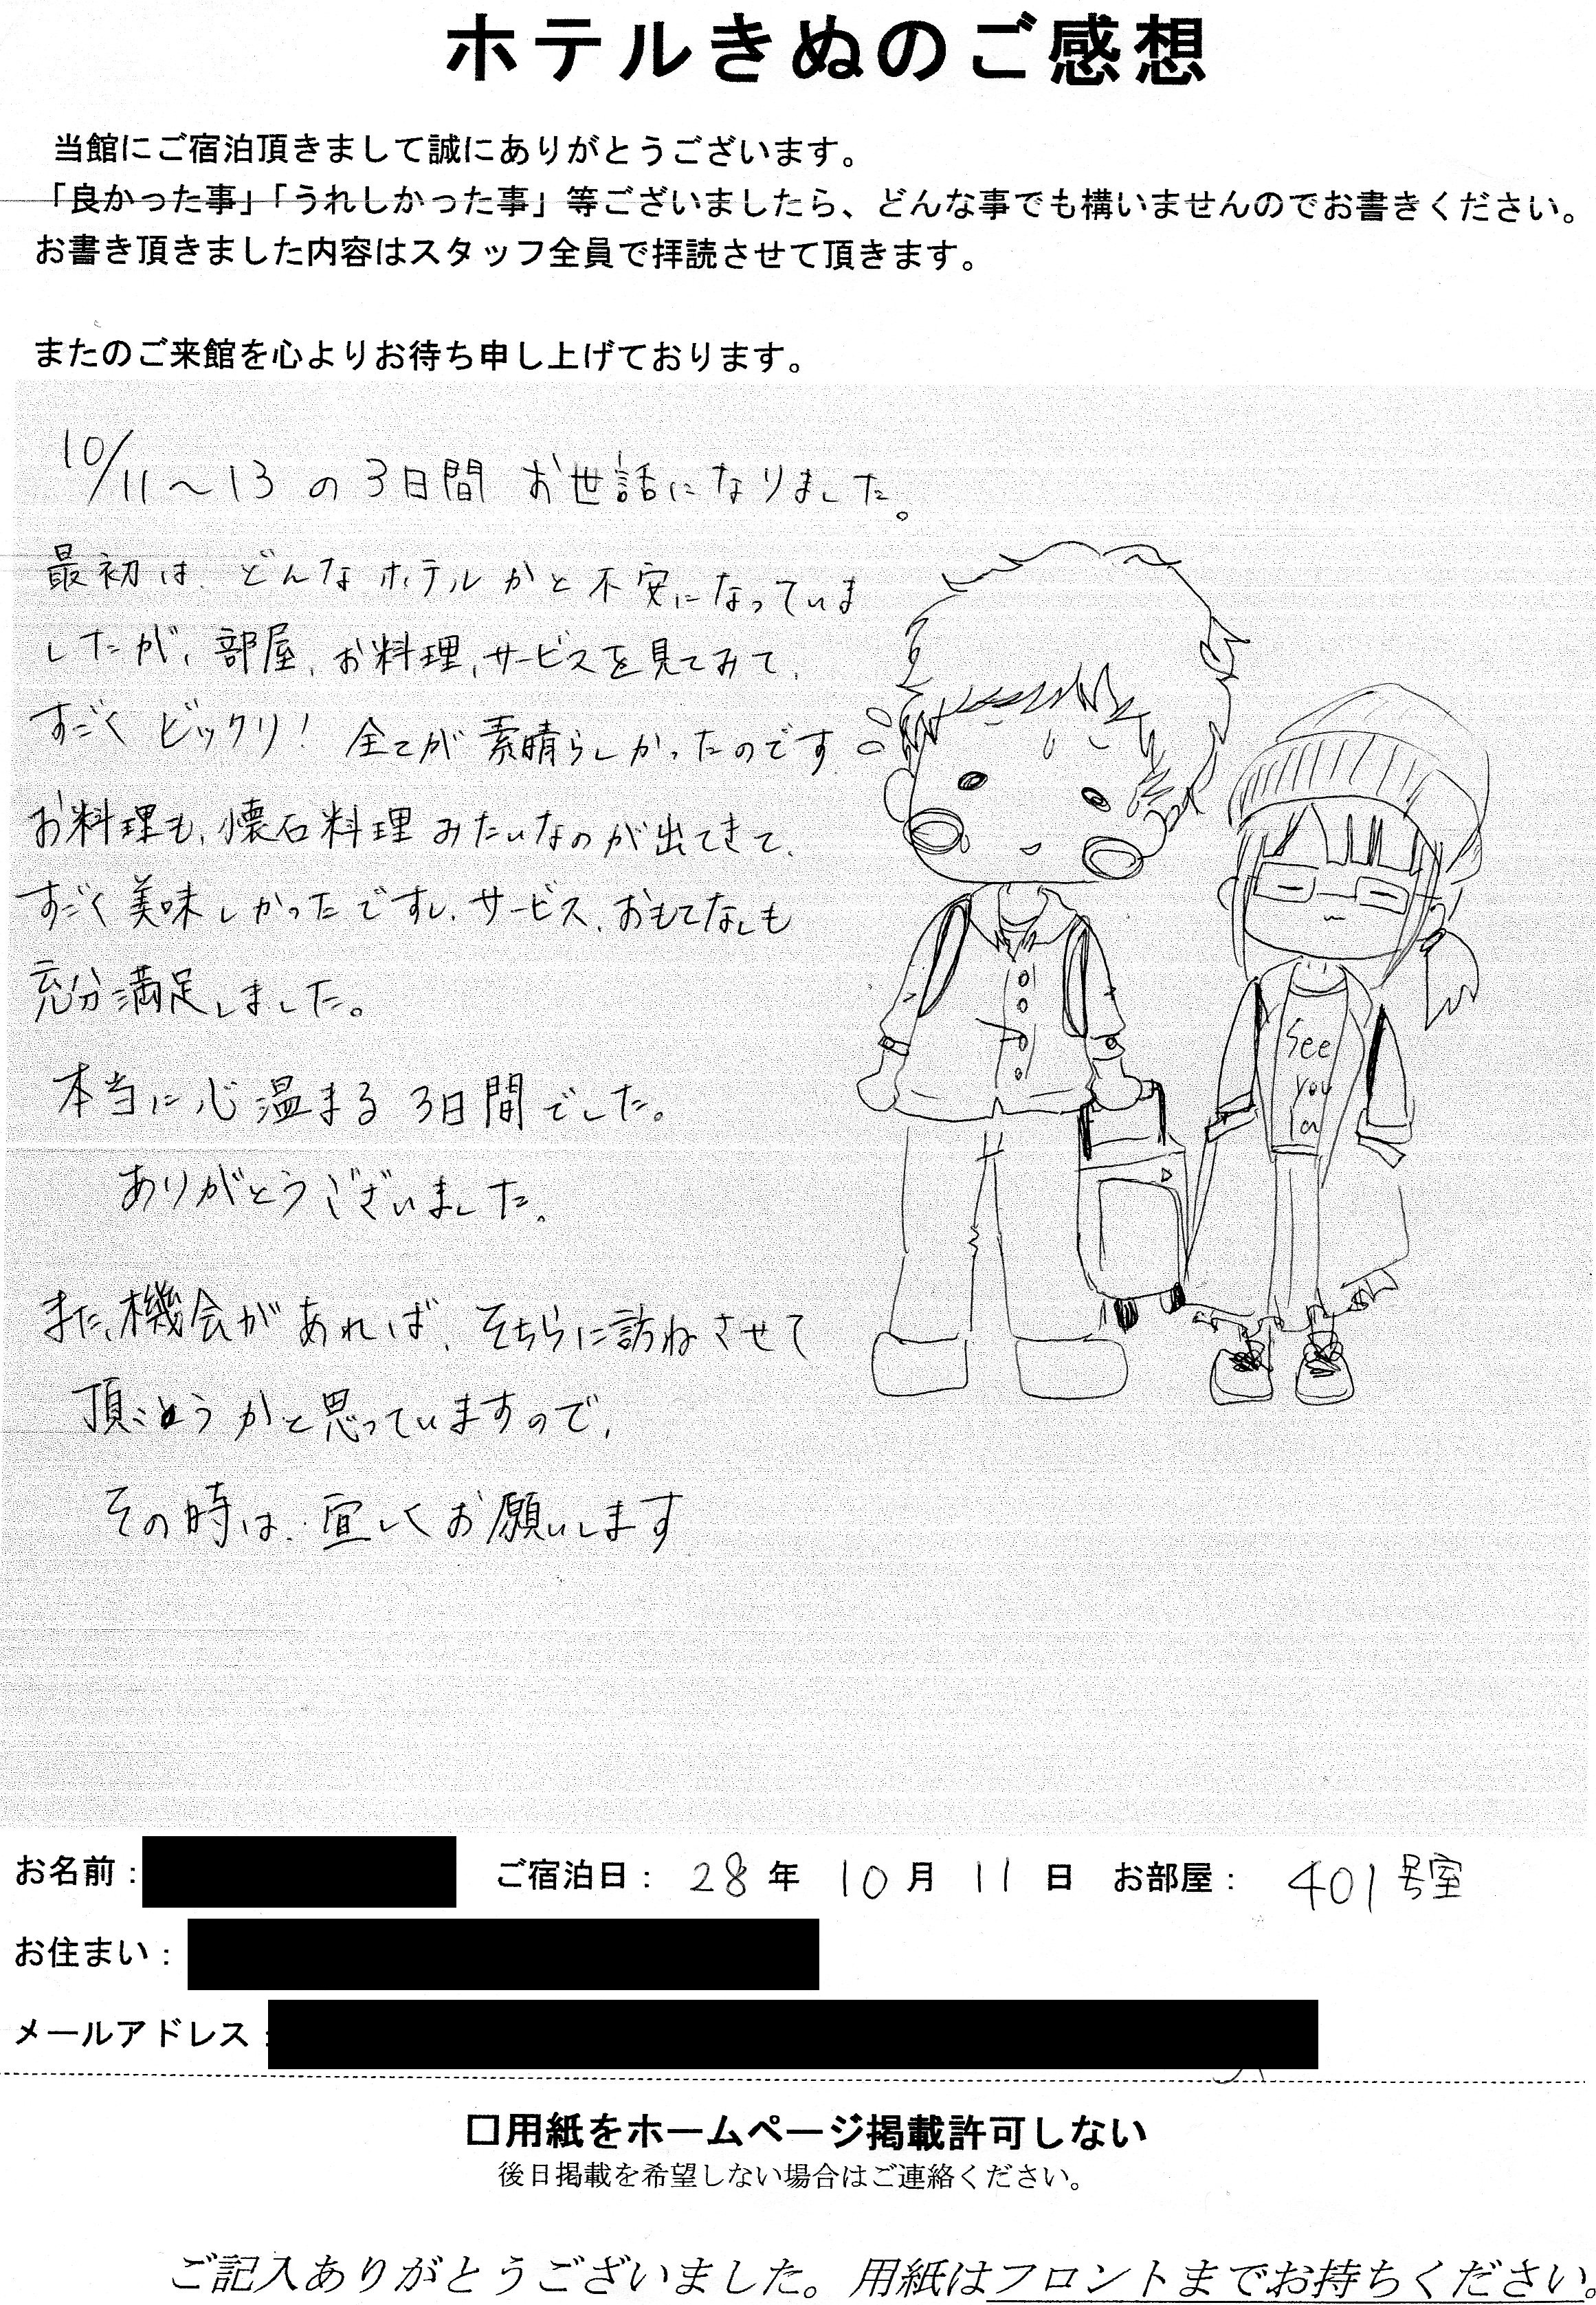 ホテルきぬのご感想
当館にご宿泊頂きまして誠にありがとうございます。
「良かった事」「うれしかった事」等ございましたら、どんな事でも構いませんのでお書きください。
お書き頂きました内容はスタッフ全員で拝読させて頂きます。
またのご来館を心よりお待ち申し上げております。
10/11～13の3日間 お世話になりました。
最初は、どんなホテルかと不安になっていま
したが、部屋、お料理、サービスを見てみて、
すごくビックリ！全てが素晴らしかったのです
お料理も、懐石料理みたいなのが出てきて、
すごく美味しかったですし、サービス、おもてなしも
充分満足しました。
本当に心温まる3日間でした。
ありがとうございました。
また、機会があれば、そちらに訪ねさせて
頂こうかと思っていますので、
その時は、宜しくお願いします
See
you
la
お名前：
ご宿泊日： 28年 10月 11日 お部屋： 401号室
お住まい：
メールアドレス：
□用紙をホームページ掲載許可しない
後日掲載を希望しない場合はご連絡ください。
ご記入ありがとうございました。用紙はフロントまでお持ちください。